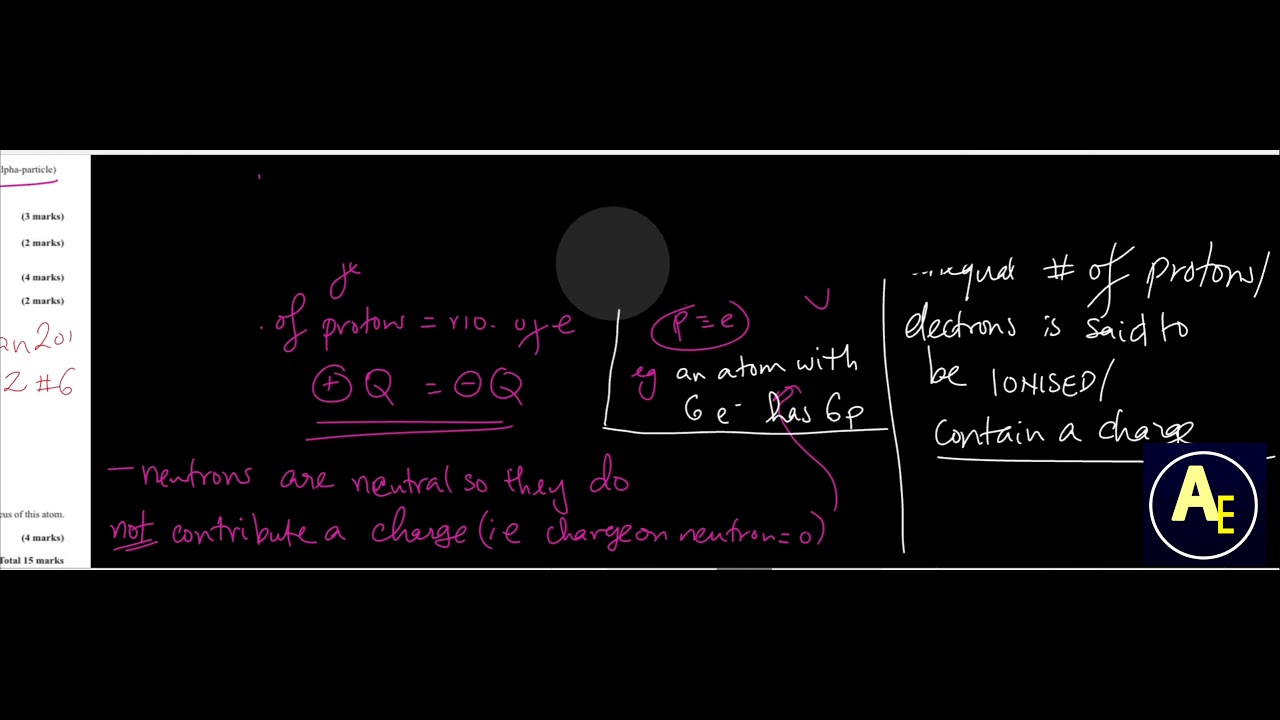 lpha-particle)
(3 marks)
(2 marks)
(4 marks)
(2 marks)
an 201
2 #6
cus of this atom.
(4 marks)
Total 15 marks
of protons = no. of e
⊕ Q = ⊖ Q
- neutrons are neutral so they do
not contribute a charge (ie charge on neutron = 0)
p = e
eg an atom with
6 e⁻ has 6p
equal # of protons/
electrons is said to
be IONISED/
contain a charge
AE